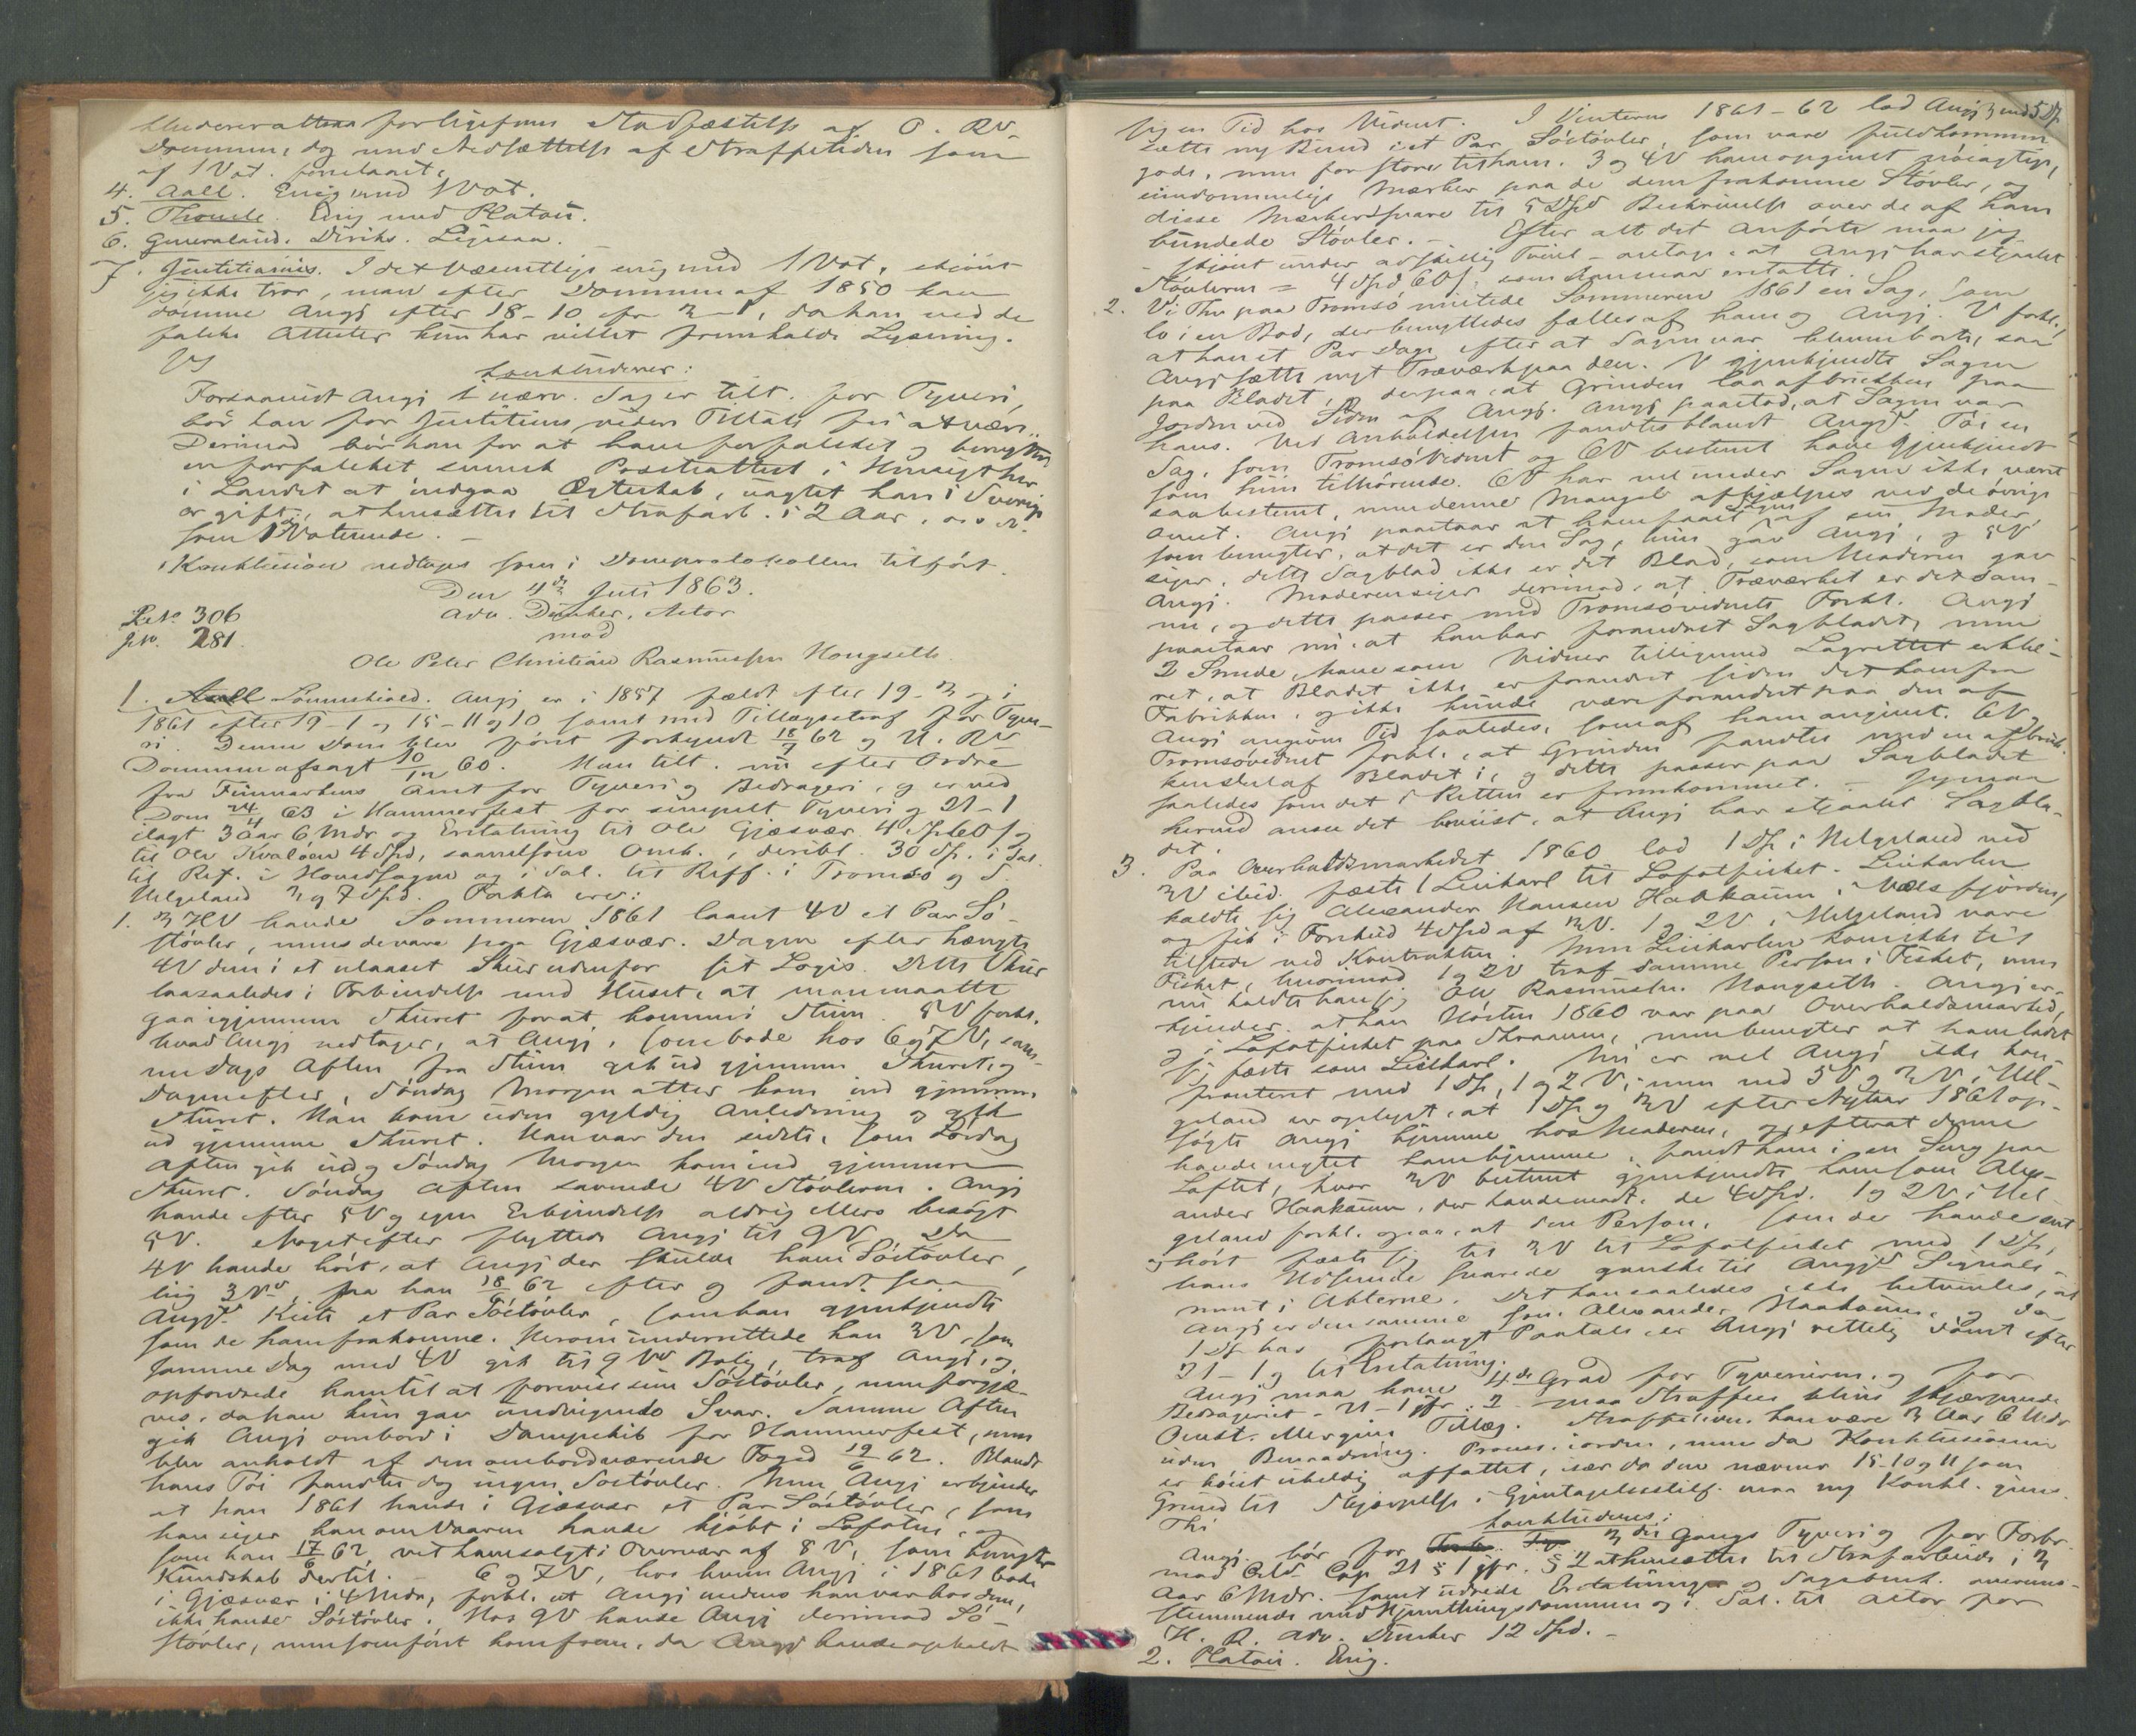 Underrettens forligefrem Stadfæstelse af O. RV.
Dommen, dog med Nedsættelse af Straffetiden som
af 1 Vot. foreslaaet.
4. Aall. Enig med 1 Vot.
5. Thomle. Enig med Platou.
6. Generalaud. Diriks. Ligesaa.
7. Justitiarius. I det Væsentlige enig med 1 Vot., skjönt
jeg ikke tror, man efter Dommen af 1850 kan
dömme Angj efter 18-10 cfr 3-1, da han ved de
falske Attester kun har villet fremholde Lysning.
Konkluderer:
Forsaavidt Angj i nærv. Sag er tilt. for Tyveri,
bör han for Justitiens videre Tiltale fri at være.
Derimod bör han for at have forfalsket og benyttet
en forfalsket svensk Præsteattest i Hensigt her
i Landet at indgaa Ægteskab, uagtet han i Sverige
er gift, at hensættes til Strafarb. i 2 Aar, o.s.v.
som 1 Voterende. -
Konklusion vedtages som i Domsprotokollen tilfört.
Den 4de Juli 1863.
Adv. Dunker, Actor
mod
Ole Peter Christian Rasmussen Hongseth.
LNo. 306
JNo. 281.
1. Aall Lövenskiold. Angj er i 1857 fældt efter 19-3 og i
1861 efter 19-1 og 15-11 og 10 samt med Tillægsstraf for Tyve-
ri. Denne Dom blev först forkyndt 18/7 62 og U. RV
Dommen afsagt 10/12 60. Han tilt. nu efter Ordre
fra Finmarkens Amt for Tyveri og Bedrageri, og er ved
Dom 24/4 63 i Hammerfest for simpelt Tyveri og 21-1
ilagt 3 Aar 6 Mdr og Erstatning til Ole Gjæsvær 4 Spd 60 s og
til Ole Kvalöen 4 Spd, saavelsom Omk., deribl. 30 Sp. i Sal.
til Ref. i Hovedsagen og i Sal. til Reff. i Tromsö og S.
Helgeland 3 og 7 Spd. Fakta ere:
1. 3 HV havde Sommeren 1861 laant 4V et Par Sö-
støvler, mens de vare paa Gjæsvær. Dagen efter hængte
4V dem i et ulaaset Skur udenfor sit Logis. Dette Skur
laa saaledes i Forbindelse med Huset, at man maatte
gaa igjennem Skuret for at komme i Stuen. 5V forkl.
hvad Angj vedtager, at Angj, som bode hos 6 og 7V, sam-
me Dags Aften fra Stuen gik ud gjennem Skuret, og
Dagen efter, Söndag Morgen atter kom ind gjennem
Skuret. Han kom uden gyldig Anledning og gik
ud gjennem Skuret. Han var den sidste, som Lördag
Aften gik ud og Söndag Morgen kom ind gjennem
Skuret. Söndag Aften savnede 4V Stövlerne. Angj
havde efter 5V og egen Erkjendelse aldrig ellers besögt
5V. Noget efter flyttede Angj til 9V. Da
4V havde hört, at Angj der skulde have Söstövler,
lig 3Vs, saa han 18/6 62 efter og fandt paa
Angjs Kiste et Par Söstövler, som han gjenkjendte
som de ham frakomne. Herom underrettede han 3V, som
samme Dag med 4V gik til 9 Vs Bolig, traf Angj, og
opfordrede ham til at forevise sine Söstövler, men forgjæ-
ves, da han kun gav undvigende Svar. Samme Aften
gik Angj ombord i Dampskib for Hammerfest, men
blev anholdt af den ombordværende Foged 19/6 62. Blandt
hans Töi fandtes dog ingen Söstövler. Men Angj erkjender
at han 1861 havde i Gjæsvær et Par Söstövler, som
han siger han om Vaaren havde kjöbt i Lofoten, og
som han 17/6 62 vil have solgt i Overvær af 8V, som benegter
Kundskab dertil. - 6 og 7V, hos hvem Angj i 1861 bode
i Gjæsvær i 4 Mdr, forkl. at Angj medens han var hos dem,
ikke havde Söstövler. Hos 9V havde Angj derimod Sö-
stövler, men som först kom frem, da Angj havde opholdt
sig en Tid hos Vidnet. I Vinteren 1861-62 lod Angj 3 med 5 Dp
sætte ny Bund i et Par Söstövler, som vare fuldkommen
gode, men for store til ham. 3 og 4V have opgivet nöiagtige,
eiendommelige Mærker paa de dem frakomne Stövler, og
disse Mærker svare til 5 Dps Beskrivelse over de af ham
bundede Stövler. - Efter alt det Anförte maa jeg
- skjönt under adskillig Tvivl - antage, at Angj har stjaalet
Stövlerne = 4 Spd 60 s, som han maa erstatte.
2. Vi Thr paa Tromsö mistede Sommeren 1861 en Sag, som
lo i en Bod, der benyttedes fælles af ham og Angj. V forkl.,
at han et Par Dage efter at Sagen var blevn borte, saa
Angj sætte nyt Træværk paa den. V gjenkjendte Sagen
paa Bladet, og derpaa, at Grinden laa afbrukken paa
Jorden ved Siden af Angj. Angj paastod, at Sagen var
hans. Ved Anholdelsen fandtes blandt Angjs Töi en
Sag, som Tromsövidnet og 6V bestemt have gjenkjendt
som hiin tilhörende. 6V har vel under Sagen ikke været
saa bestemt, men denne Mangel afhjælpes ved de övrige
Omst. Angj paastaar at have faaet Sagen af sin Moder,
som benegter, at det er den Sag, hun gav Angj, og 5V
siger, dette Sagblad ikke er det Blad, som Moderen gav
Angj. Moderen siger derimod, at Træværket er det sam-
me, og dette passer med Tromsövidnets Forkl. Angj
paastaar nu, at han har forandret Sagbladet, men
2 Smede, have som Vidner tilligemed Lagrettet erklæ-
ret, at Bladet ikke er forandret siden det kom fra
Fabrikken, og ikke kunde være forandret paa den af
Angj angivne Tid saaledes, som af ham angivet. 6V og
Tromsövidnet forkl., at Grinden fandtes med en afbruk-
ken Del af Bladet i, og dette passer paa Sagbladet
saaledes som det i Retten er fremkommet. - Jeg maa
herved anse det bevist, at Angj har stjaalet Sagbla-
det.
3. Paa Overhaldsmarkedet 1860 lod 1 Dp i Helgeland ved
3V ibid. fæste 1 Leiekarl til Lofotfisket. Leiekarlen
kaldte sig Alexander Hansen Haakaunn, Velsfjorden,
og fik i Forskud 4 Spd af 3V. 1 og 2V i Helgeland vare
tilstede ved Kontrakten. Men Leiekarlen kom ikke til
Fisket, hvorimod 1 og 2V traf samme Person i Fisket, men
nu kaldte han sig Ole Rasmussen Hongseth. Angj er-
kjender, at han Hösten 1860 var paa Overhaldsmarked,
og i Lofotfisket paa Skraaven, men benegter at have ladet
sig fæste som Leiekarl. Nu er vel Angj ikke kon-
fronteret med 1 Dp, 1 og 2 V, men ved 5V og 3V i Hel-
geland er oplyst, at 1 Dp og 3V efter Nytaar 1861 op-
sögte Angj hjemme hos Moderen, og efterat denne
havde negtet ham hjemme, fandt ham i en Seng paa
Loftet, hvor 3V bestemt gjenkjendte ham som Alex-
ander Haakaunn, der havde modt. de 4 Spd. 1 og 2V i Hel-
geland forkl. ogsaa, at den Person, som de havde set
og hört fæste sig til 3V til Lofotfisket med 1 Dp,
hans Udseende svarede ganske til Angjs Signale-
ment i Akterne. Det kan saaledes ikke betvivles, at
Angj er den samme som Alexander Haakaunn, og da
1 Dp har forlangt Paatale, er Angj rettelig dömt efter
21-1 og til Erstatning.
Angj maa have 4de Grad for Tyverierne, og for
Bedrageriet - 21-1 jfr. 2 maa Straffen blive skjærpende
Omst. Mergiver Tillæg. Straffetiden kan være 3 Aar 6 Mdr
uden Benaadning. Proces. i orden, men da Konklusionen
er höist uheldig affattet, især da den nævner 15-10 og 11 som
Grund til Skjærpelse i Gjentagelsestilf. maa ny Konkl. gives.
Thi
konkluderes:
Angj bör for 3die Gangs Tyveri og for Forbr.
mod Crl. Cap. 21 § 1 jfr. § 2 at hensættes til Strafarbeide i 3
Aar 6 Mdr. samt udrede Erstatninger og Sagsomk. overens-
stemmende med Hjemthingsdommen og i Sal. til Actor for
H. R. Adv. Dunker 12 Spd. -
2. Platou. Enig.